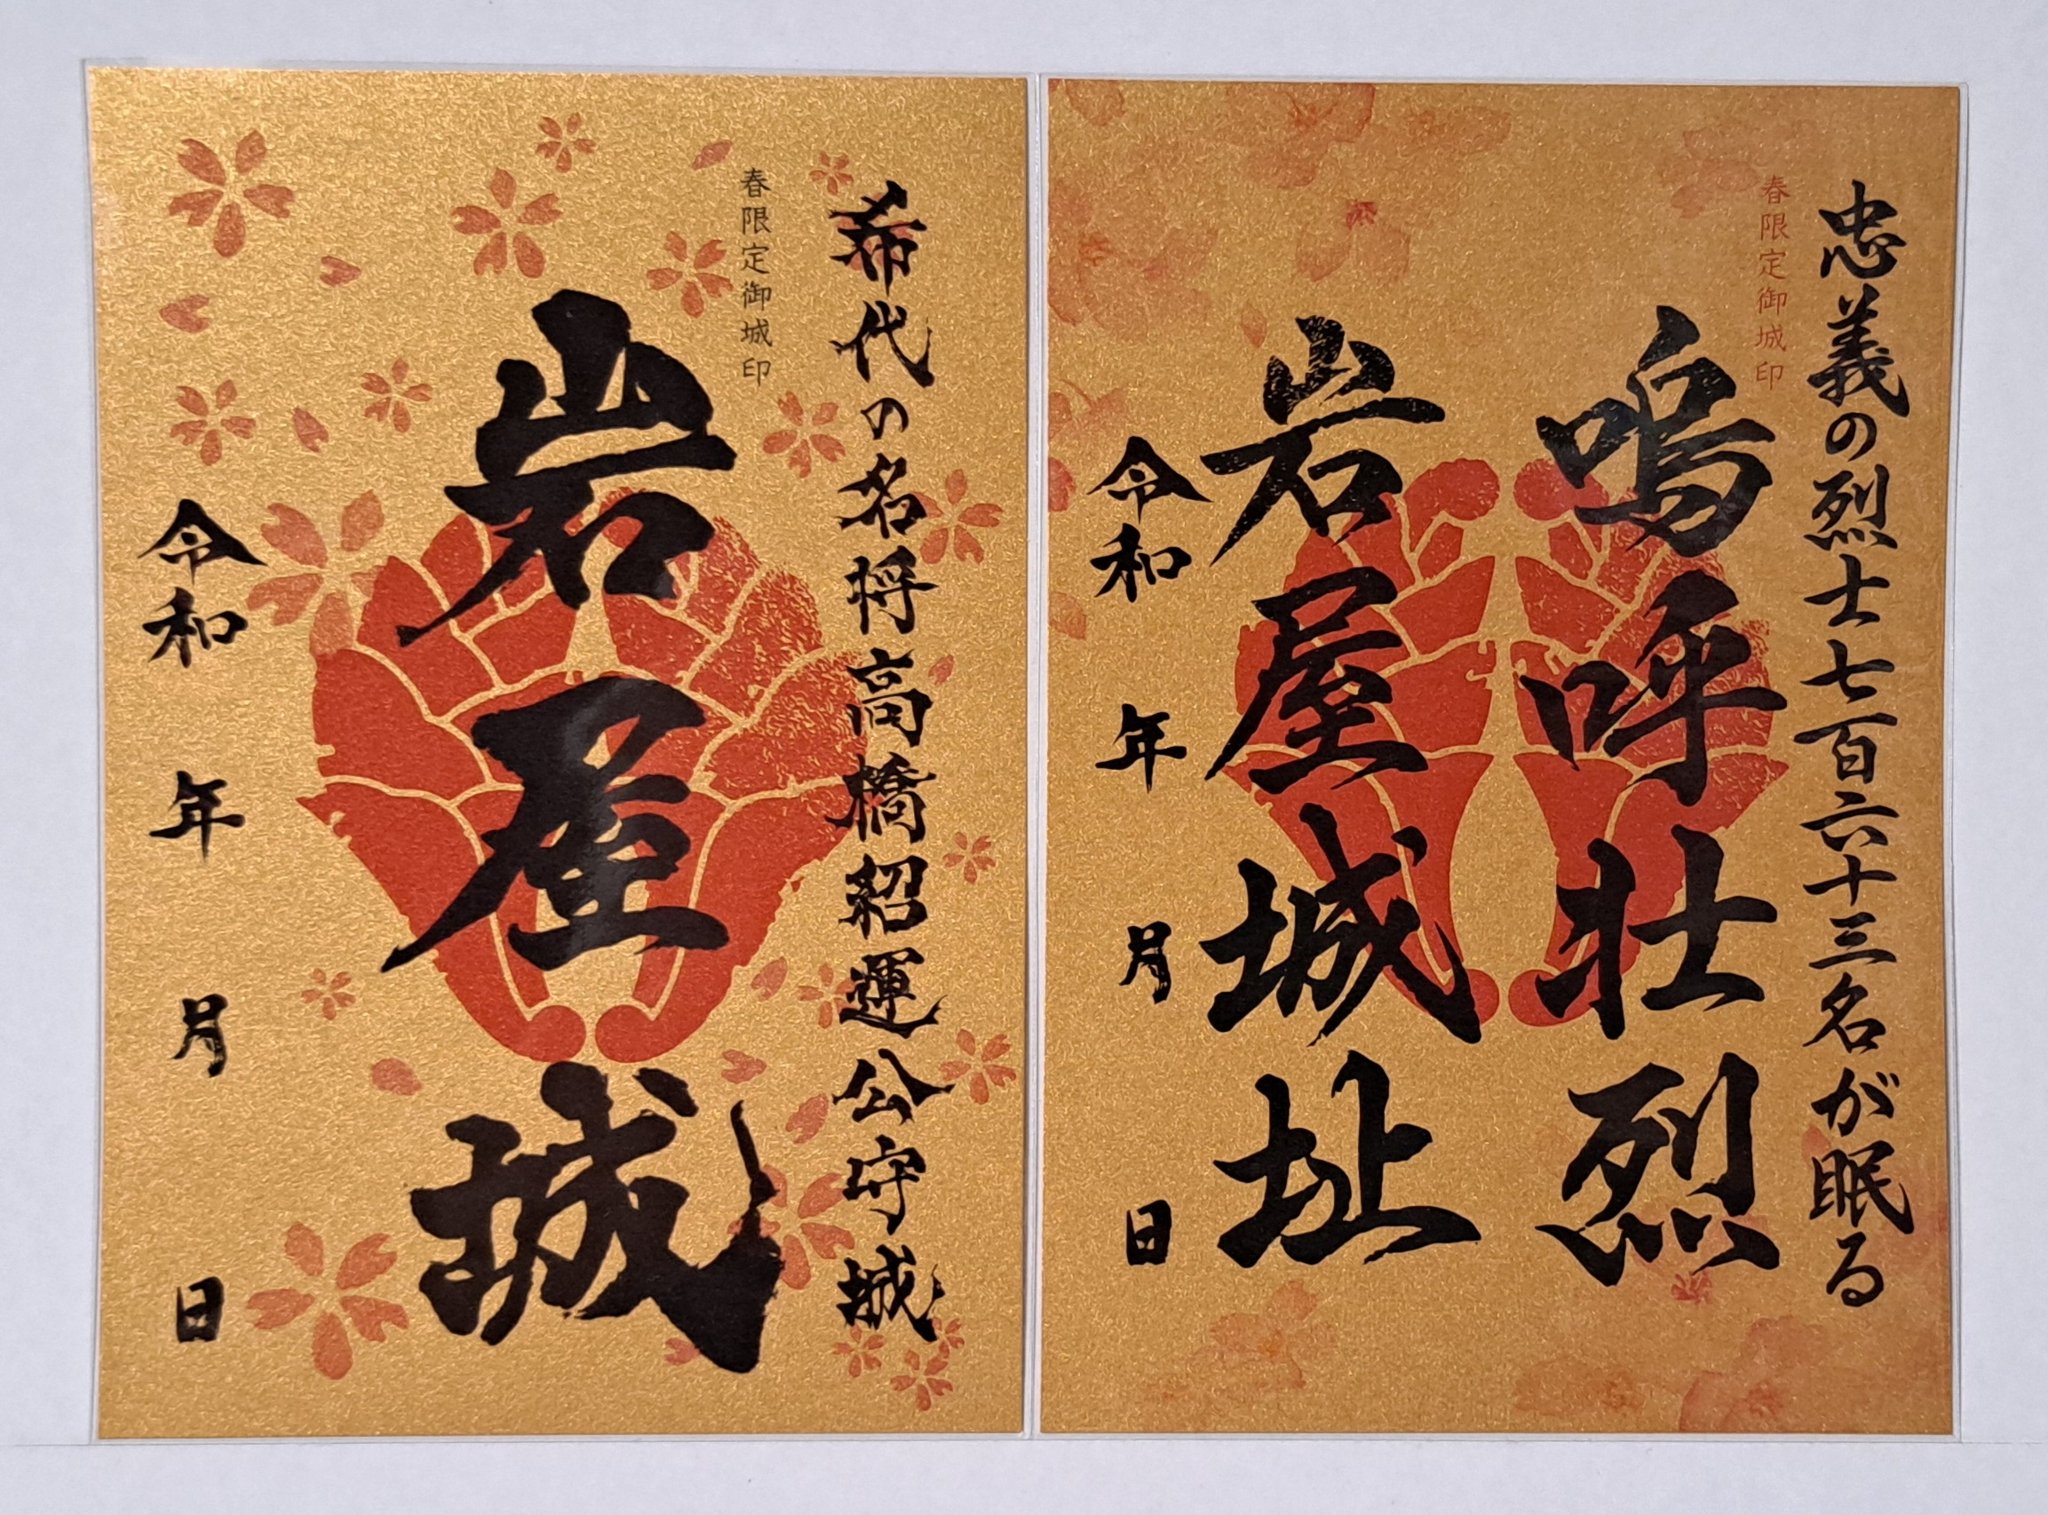 希代の名将高橋紹運公守城
春限定御城印
岩屋城
令和 年 月 日
忠義の烈士七百六十三名が眠る
春限定御城印
嗚呼壮烈
岩屋城址
令和 年 月 日